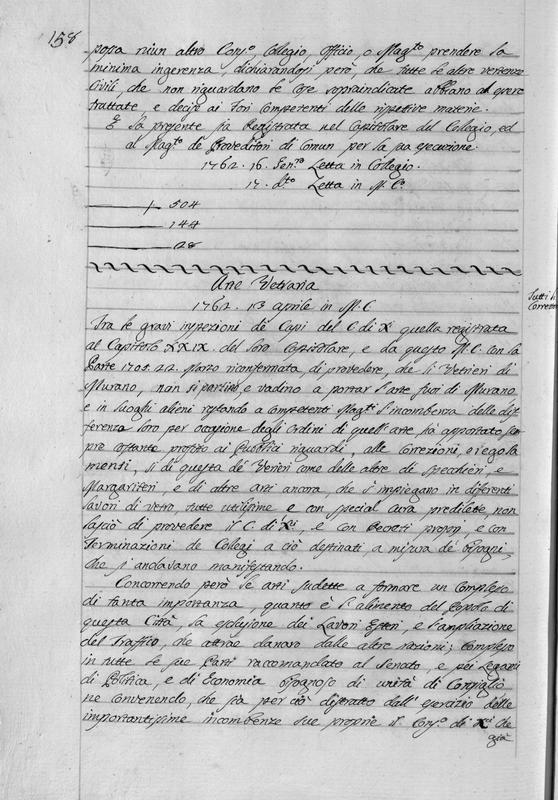 158
possa niun altro Cons.o, Collegio, Officio, o Mag.to prendere la
minima ingerenza, dichiarandosi però, che tutte le altre vertenze
Civili, che non riguardano le cose sopraindicate abbiano ad essere
trattate, e decise ai Fori Competenti delle rispettive materie.
E la presente sia Registrata nel Capitolare del Collegio, ed
al Mag.to de Proveditori di Comun per la sua esecuzione.
1762. 16. Genn.ro Letta in Collegio.
17. d.to Letta in M. C.o
+ 504
144
28
Arte Vetraria
1762. 13 aprile in M. C.
Tra le gravi inspezioni de Capi del C. di X quella registrata
al Capitolo LXXIX. del loro Capitolare, e da questo M. C. con la
Parte 1705. 22. Marzo riconfermata, di provedere, che li Vetrieri di
Murano, non si partino, e vadino a portar l'arte fuori di Murano
e in luoghi alieni restando a Competenti Mag.ti l'incombenza delle dif-
ferenze loro per occasione degli Ordini di quell'arte, ha apportato sem
pre costante profitto ai Pubblici riguardi, alle correzioni, e regola
menti, sì di questa de' Verieri come delle altre di Specchieri, e
Margariteri, e di altre arti ancora, che s'impiegano in differenti
lavori di vetro, tutte utilissime e con special cura predilette, non
lasciò di provedere il C. di X.ci e con Decreti proprj, e con
Terminazioni de Collegi a ciò destinati a misura de' bisogni,
che s'andavano manifestando.
Concorrendo però le arti sudette a formare un Complesso
di tanta importanza, quanto è l'alimento del Popolo di
questa Città, la esclusione dei Lavori Esteri, e l'ampliazione
del Traffico, che attrae danaro dalle altre nazioni; Complesso
in tutte le sue Parti raccomandato al Senato, e pei legami
di Politica, e di Economia bisognoso di unità di Consiglio
ne Convenendo, che sia per ciò distratto dall'esercizio delle
importantissime incombenze sue proprie il Cons.o di X.ci che
già
Tutti li
Correzion